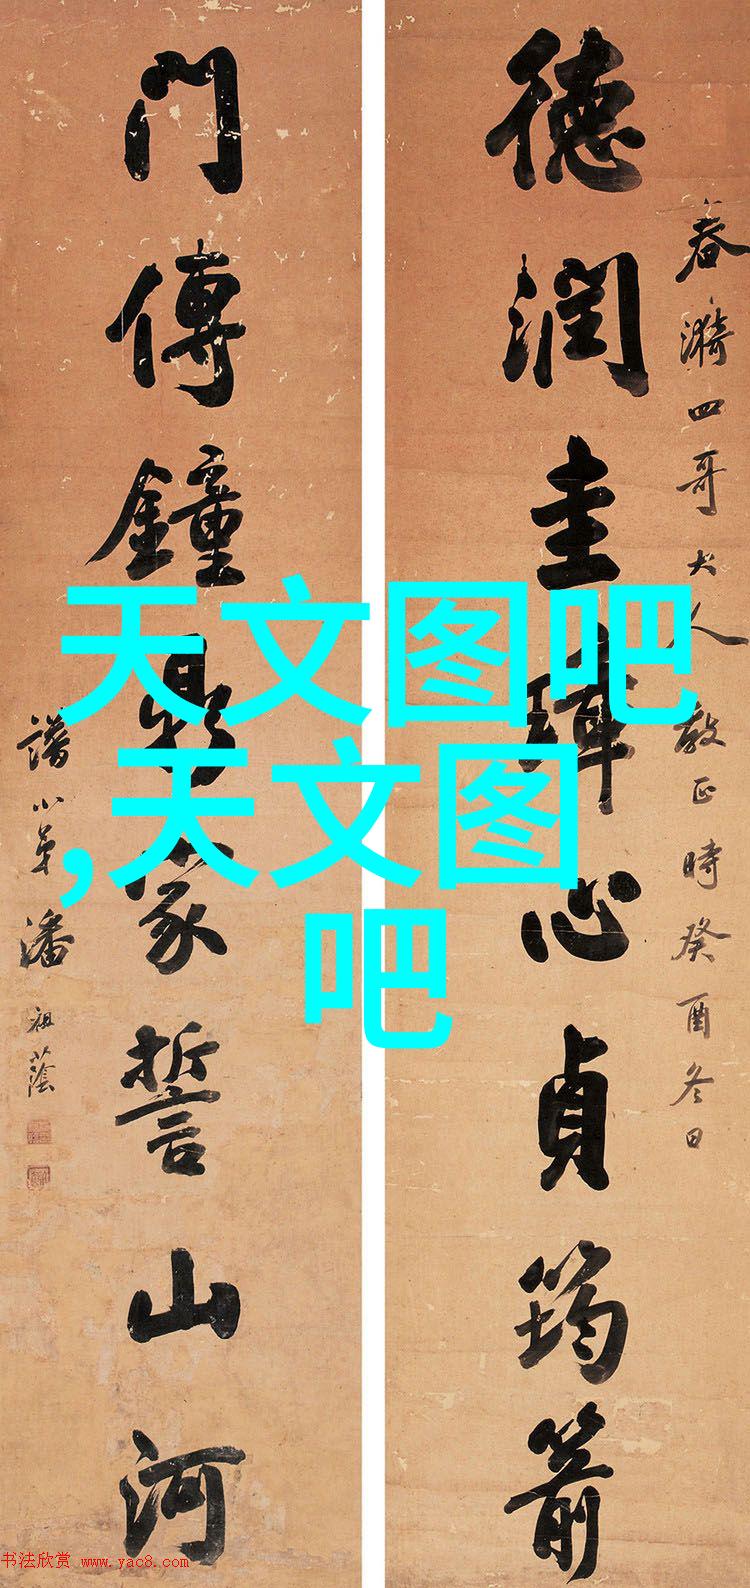 德潤圭璋心貞筠箭
春漪四哥大人教正時癸酉冬日
門傳鐘鼎家誓山河
譜小弟潘祖蔭
天文图吧
,天文图
吧
书法欣赏 www.yac8.com